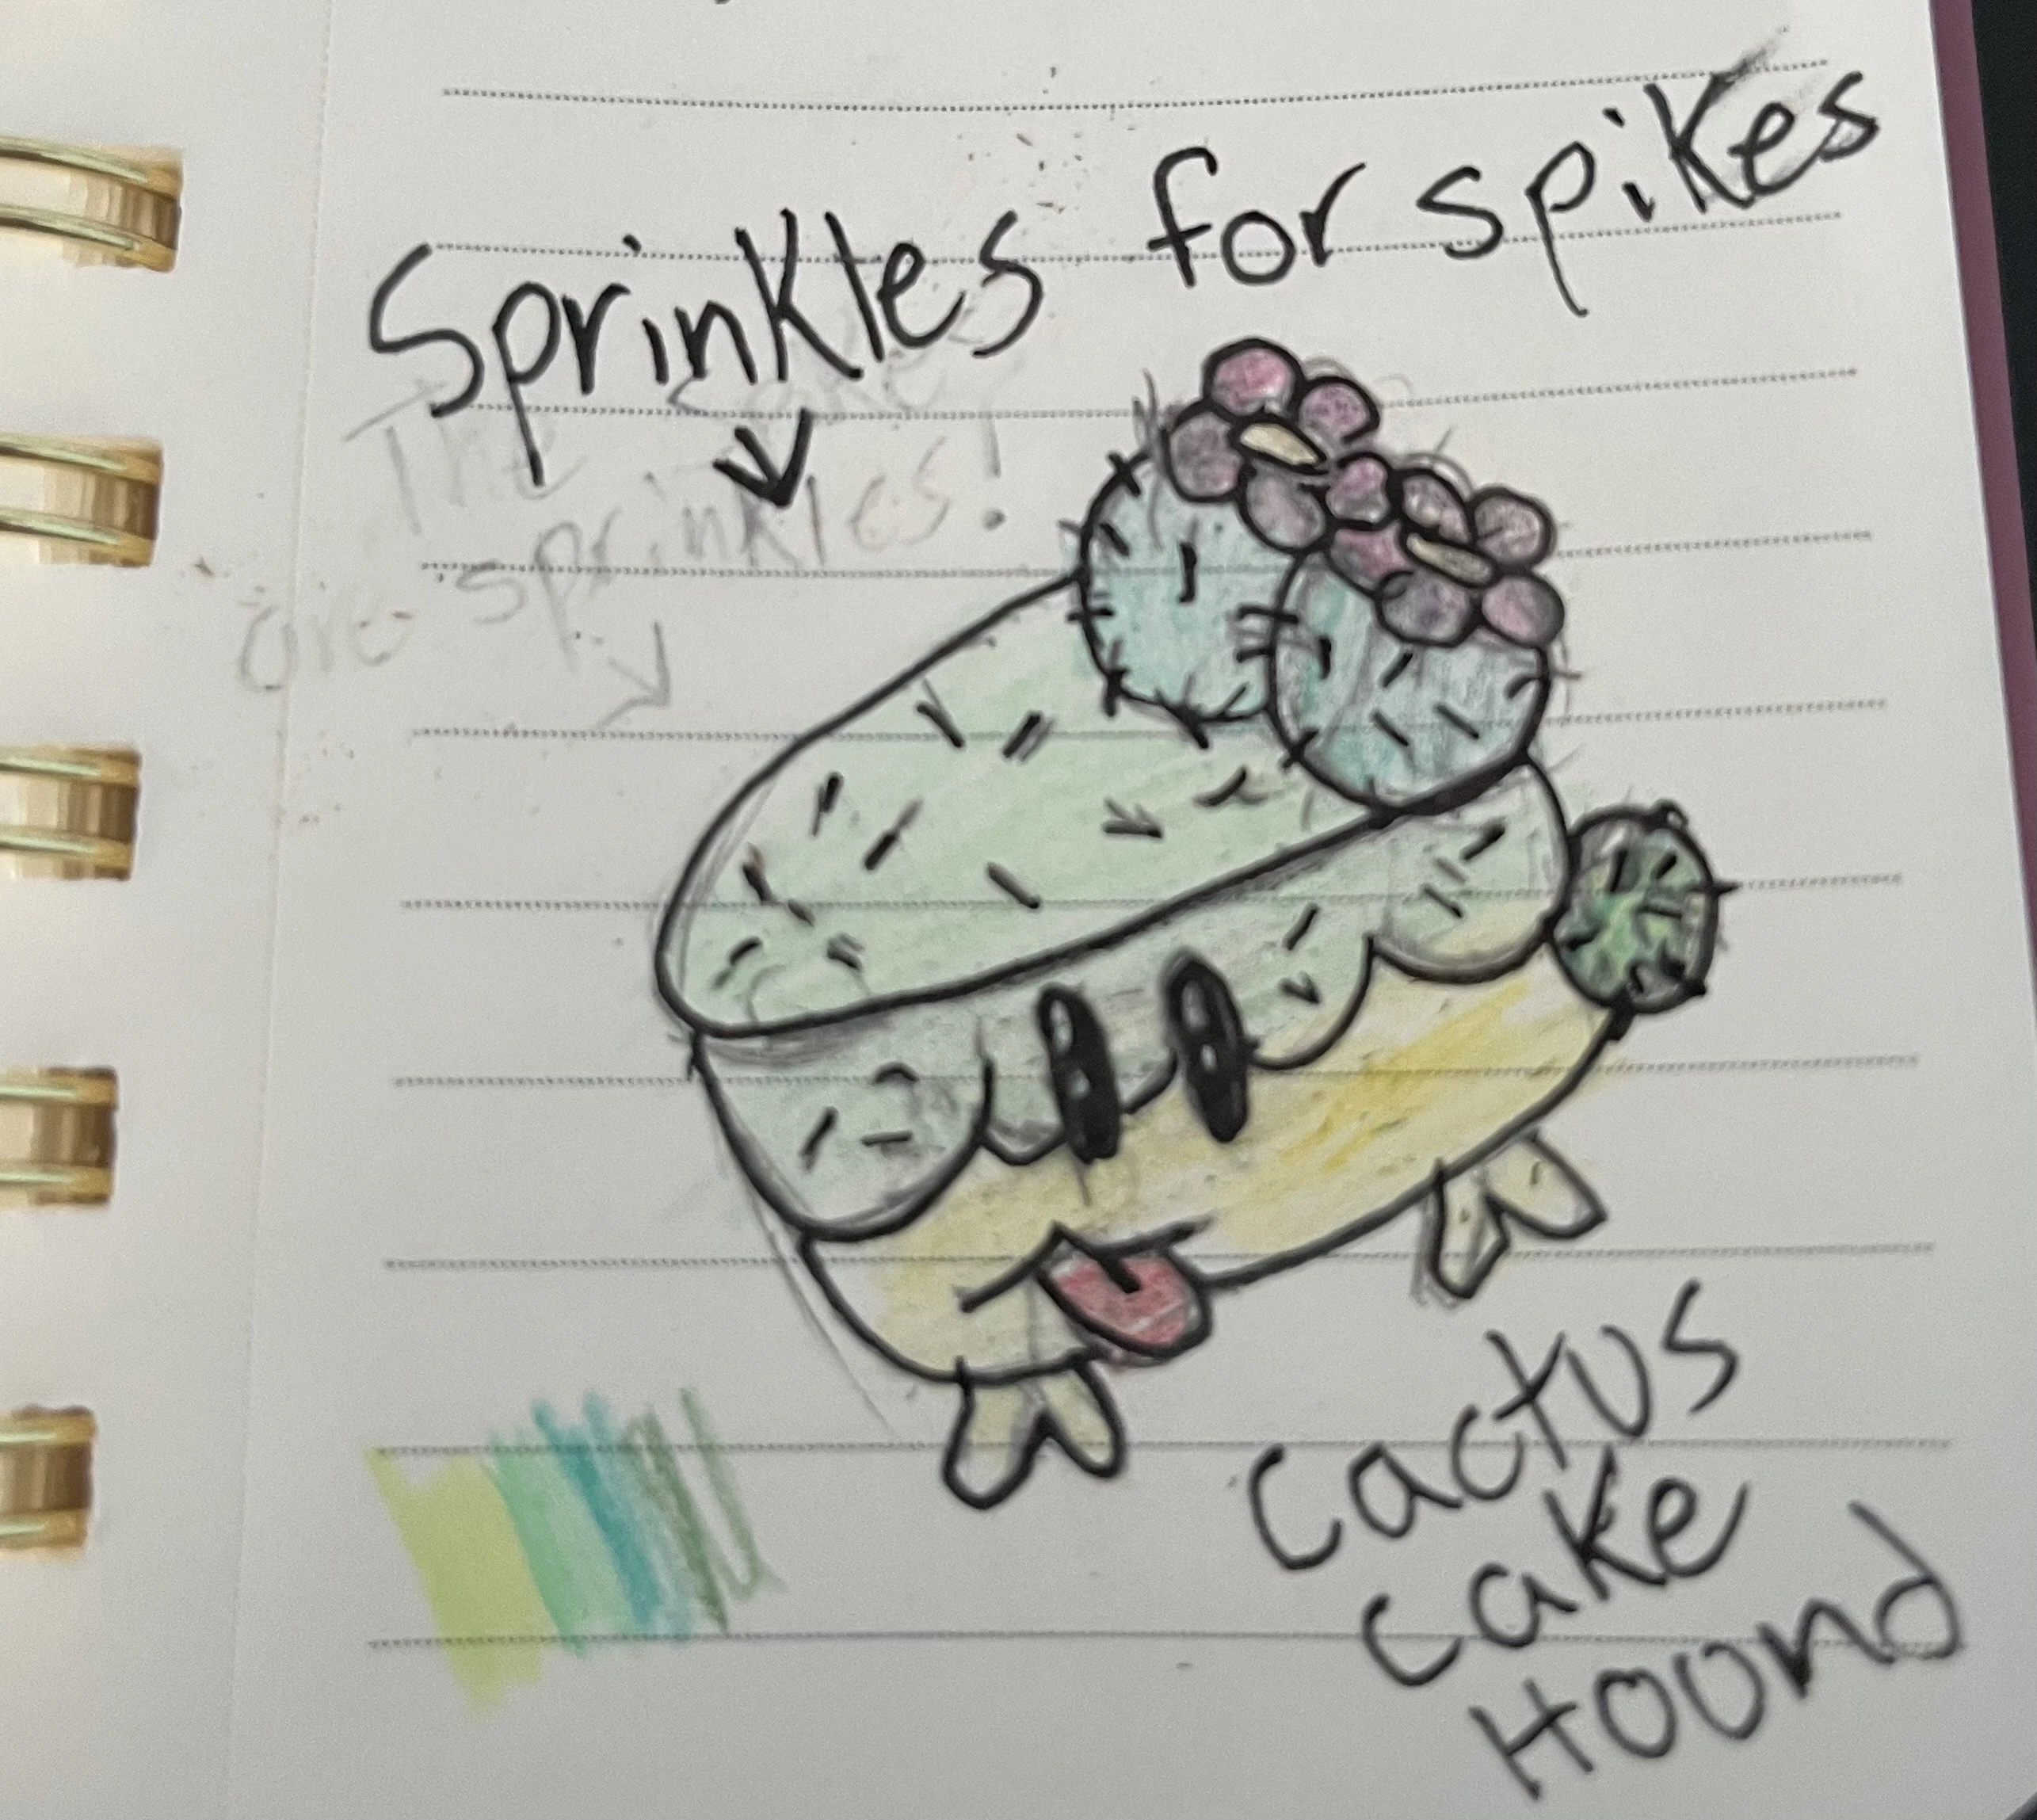 Sprinkles for spikes
The cake
are sprinkles!
cactus
cake
Hound